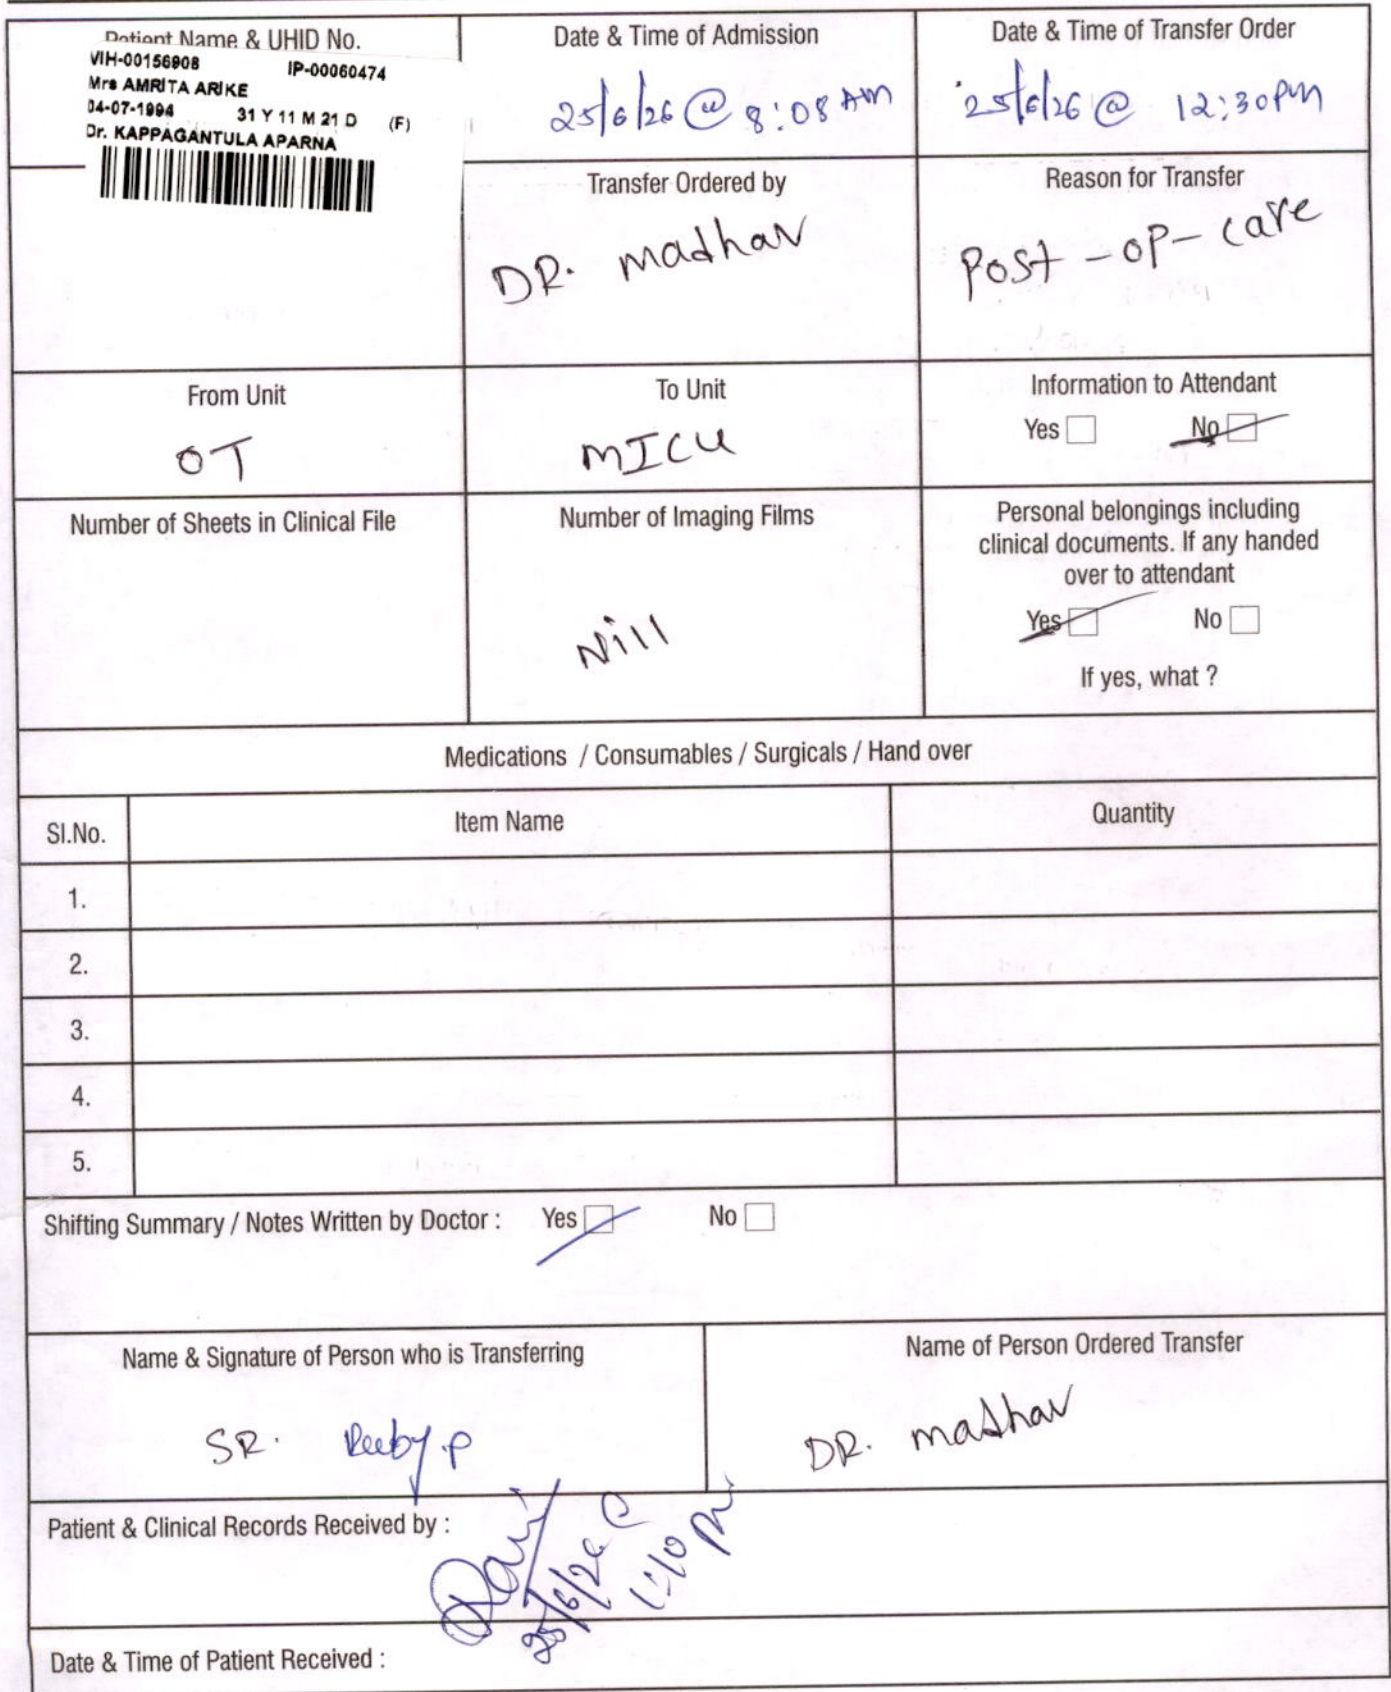 Patient Name & UHID No.
VIH-00156908 IP-00060474
Mrs AMRITA ARIKE
04-07-1994 31 Y 11 M 21 D (F)
Dr. KAPPAGANTULA APARNA
Date & Time of Admission
25/6/26 @ 8:08 AM
Date & Time of Transfer Order
25/6/26 @ 12:30pm
Transfer Ordered by
DR. madhav
Reason for Transfer
Post - op - care
From Unit
OT
To Unit
MICU
Information to Attendant
Yes No
Number of Sheets in Clinical File
Number of Imaging Films
Nill
Personal belongings including
clinical documents. If any handed
over to attendant
Yes No
If yes, what ?
Medications / Consumables / Surgicals / Hand over
Sl.No. Item Name Quantity
1.
2.
3.
4.
5.
Shifting Summary / Notes Written by Doctor : Yes No
Name & Signature of Person who is Transferring
SR. Reeby.P
Name of Person Ordered Transfer
DR. madhav
Patient & Clinical Records Received by :
25/6/26 @
1:10 Pm
Date & Time of Patient Received :